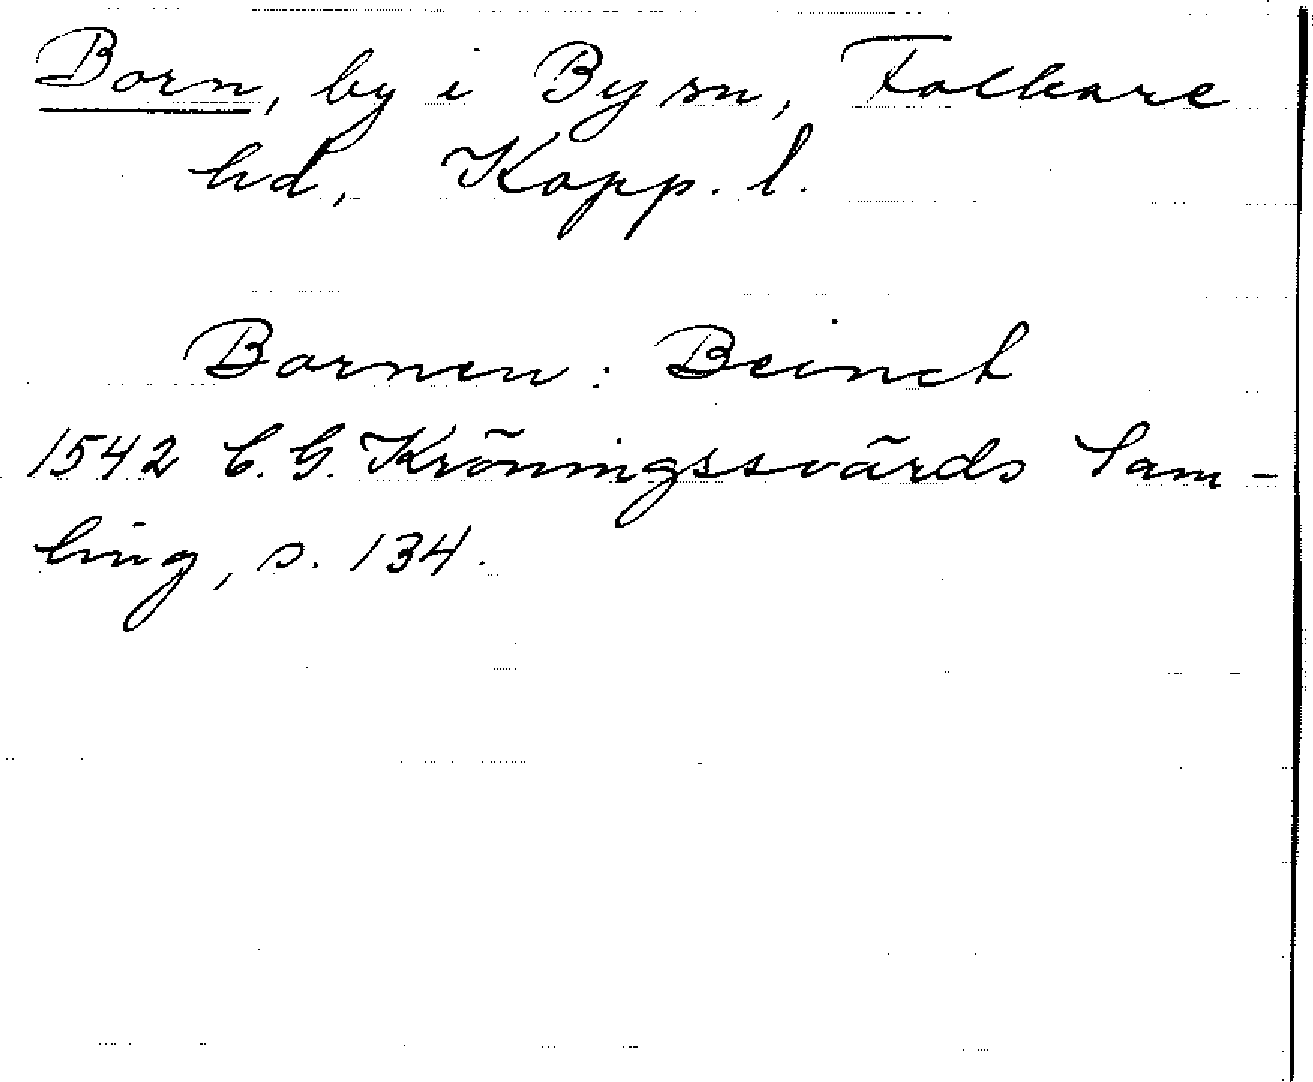 Born, by i By sn, Folkare
hd, Kopp. l.
Bornen: Beinct
1542 C. G. Kröningssvärds Sam-
ling, s. 134.